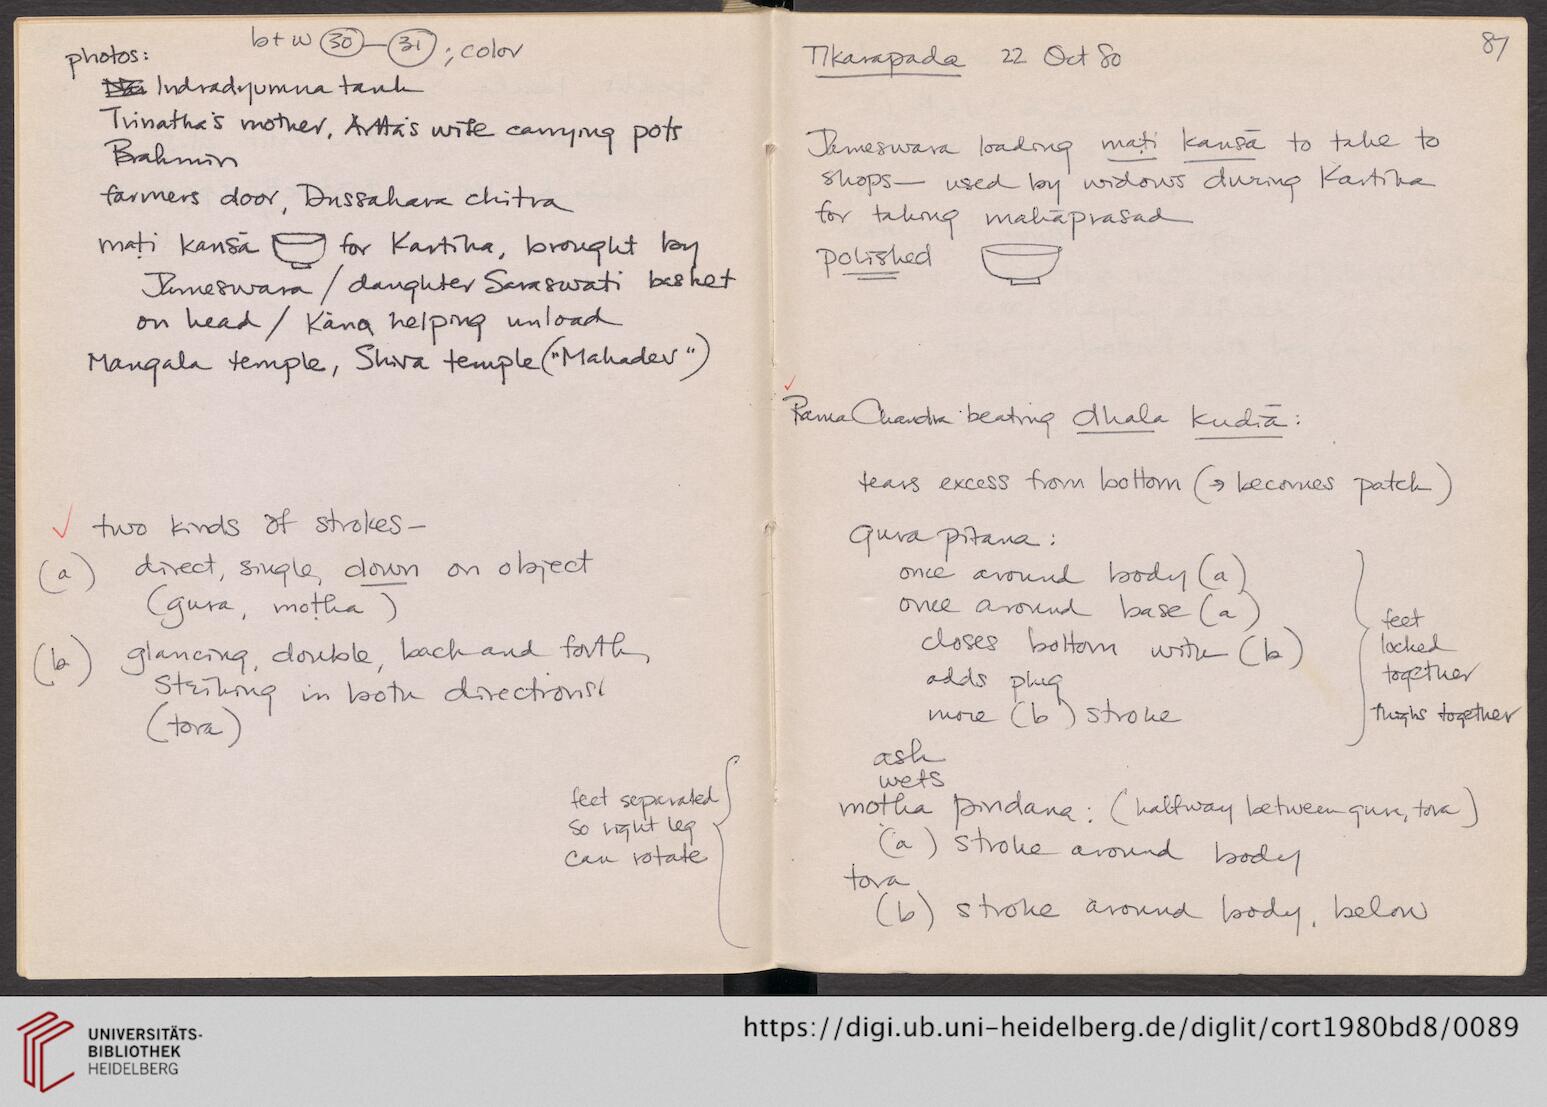 photos: b + w 30 – 31 ; color
Indradyumna tank
Trinatha's mother, Artta's wife carrying pots
Brahmin
farmers door, Dussahara chitra
maṭi kaṅsā for Kartika, brought by
Jameswara / daughter Saraswati basket
on head / Kāna helping unload
Mangala temple, Shiva temple ("Mahadev")
✓ two kinds of strokes –
(a) direct, single, down on object
(gura, moṭha)
(b) glancing, double, back and forth,
striking in both directions
(tora)
feet separated
so right leg
can rotate
Tikarapada 22 Oct 80
87
Jameswara loading maṭi kaṅsā to take to
shops — used by widows during Kartika
for taking mahāprasad
polished
✓
Rama Chandra beating dhala kudiā :
tears excess from bottom (→ becomes patch)
gura piṭana :
once around body (a)
once around base (a)
closes bottom with (b)
adds plug
more (b) stroke
feet
locked
together
thighs together
ash
wets
motha pindana : (halfway between gura, tora)
(a) stroke around body
tora
(b) stroke around body, below
UNIVERSITÄTS-
BIBLIOTHEK
HEIDELBERG
https://digi.ub.uni-heidelberg.de/diglit/cort1980bd8/0089